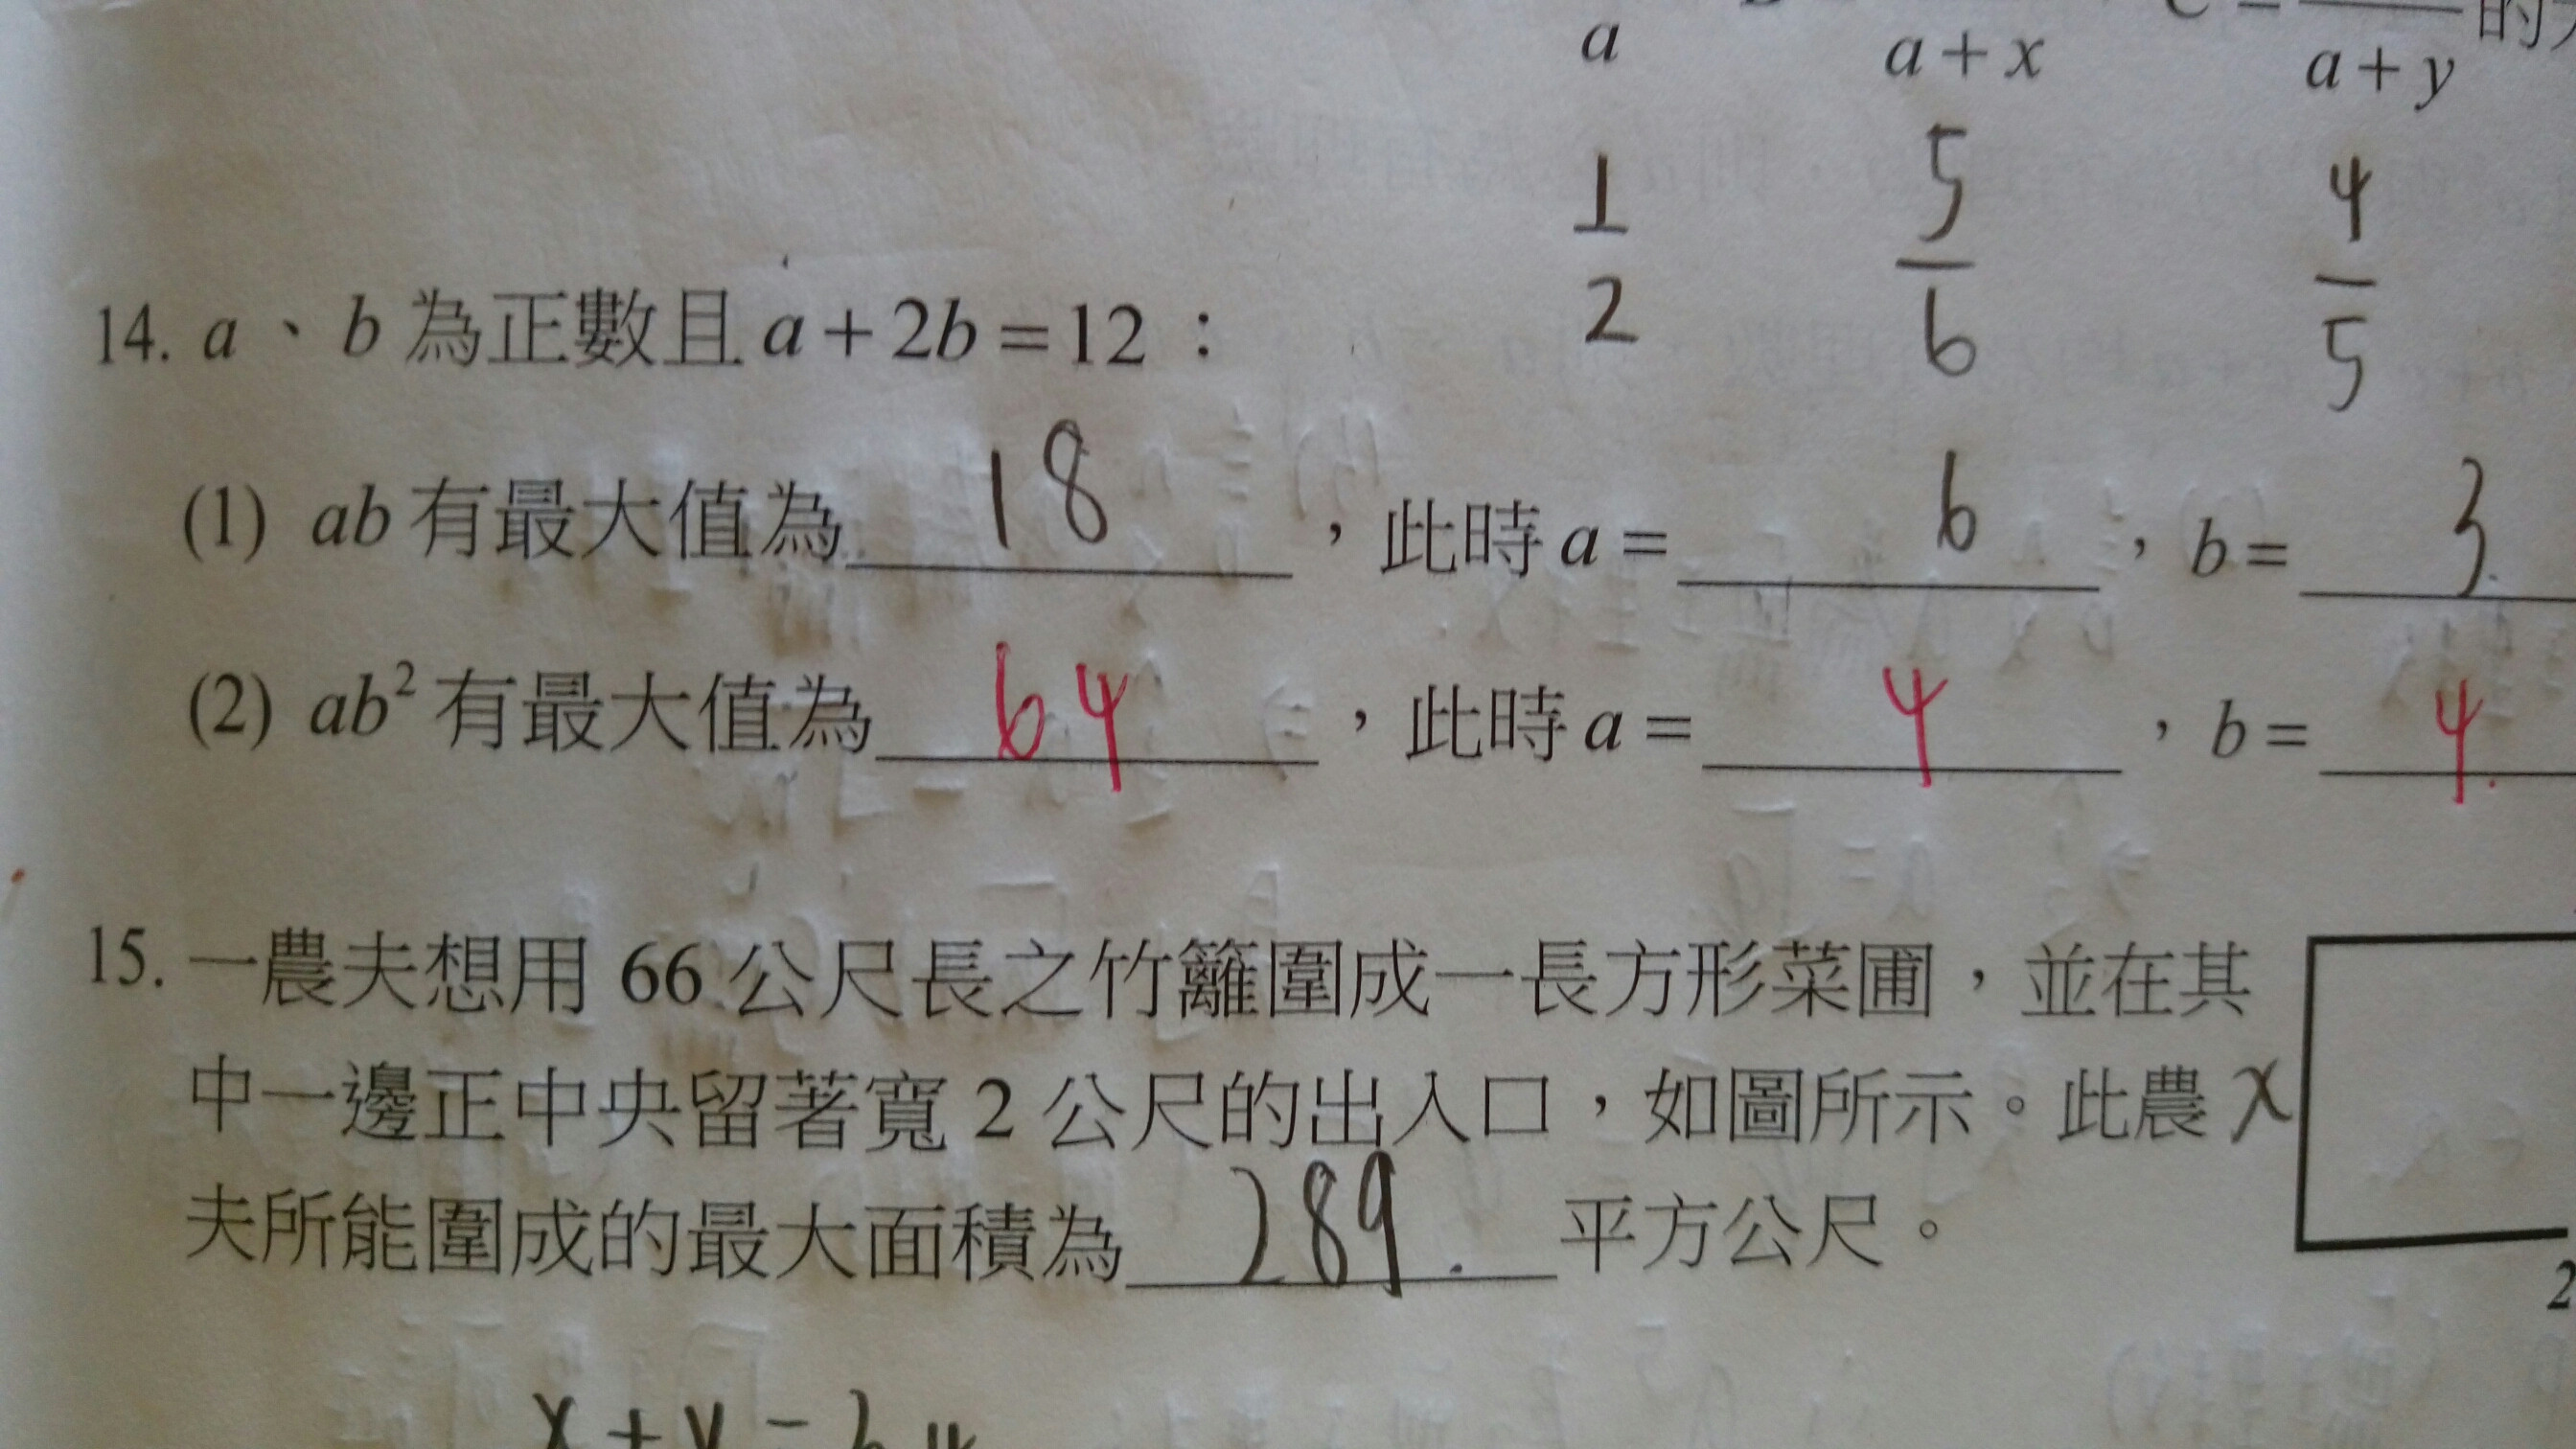 a a+x C= a+y 的
1/2 5/6 4/5
14. a、b 為正數且 a+2b=12：
(1) ab 有最大值為 18，此時 a= 6，b= 3.
(2) ab² 有最大值為 64，此時 a= 4，b= 4.
15. 一農夫想用 66 公尺長之竹籬圍成一長方形菜圃，並在其
中一邊正中央留著寬 2 公尺的出入口，如圖所示。此農 x
夫所能圍成的最大面積為 289. 平方公尺。
2